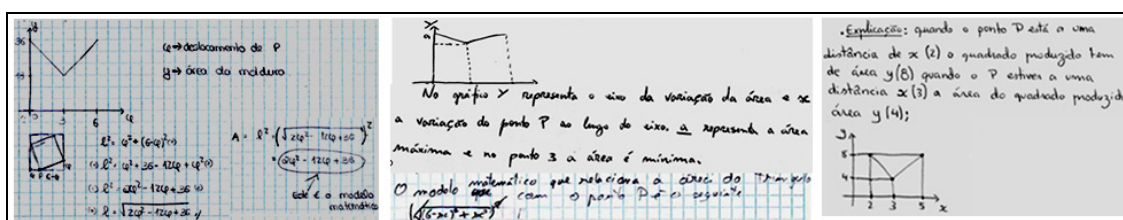 y
36
φ → deslocamento de P
y → área da moldura
18
0 3 6 φ
l² = φ² + (6-φ)² (=)
(=) l² = φ² + 36 - 12φ + φ² (=)
(=) l² = 2φ² - 12φ + 36 (=)
(=) l = √2φ² - 12φ + 36 //
A = l² = (√2φ² - 12φ + 36)²
= 2φ² - 12φ + 36
este é o modelo
matemático
y
a
No gráfico Y representa o eixo da variação da área e x
a variação do ponto P ao longo do eixo. a representa a área
máxima e no ponto 3 a área é mínima.
O modelo matemático que relaciona a área do triângulo
com o ponto P é o seguinte
(√(6-x)² + x²)²
. Explicação: quando o ponto P está a uma
distância de x (2) o quadrado produzido tem
de área y (8) quando o P estiver a uma
distância x (3) a área do quadrado produzido
área y (4);
y
8
4
2 3 5 x